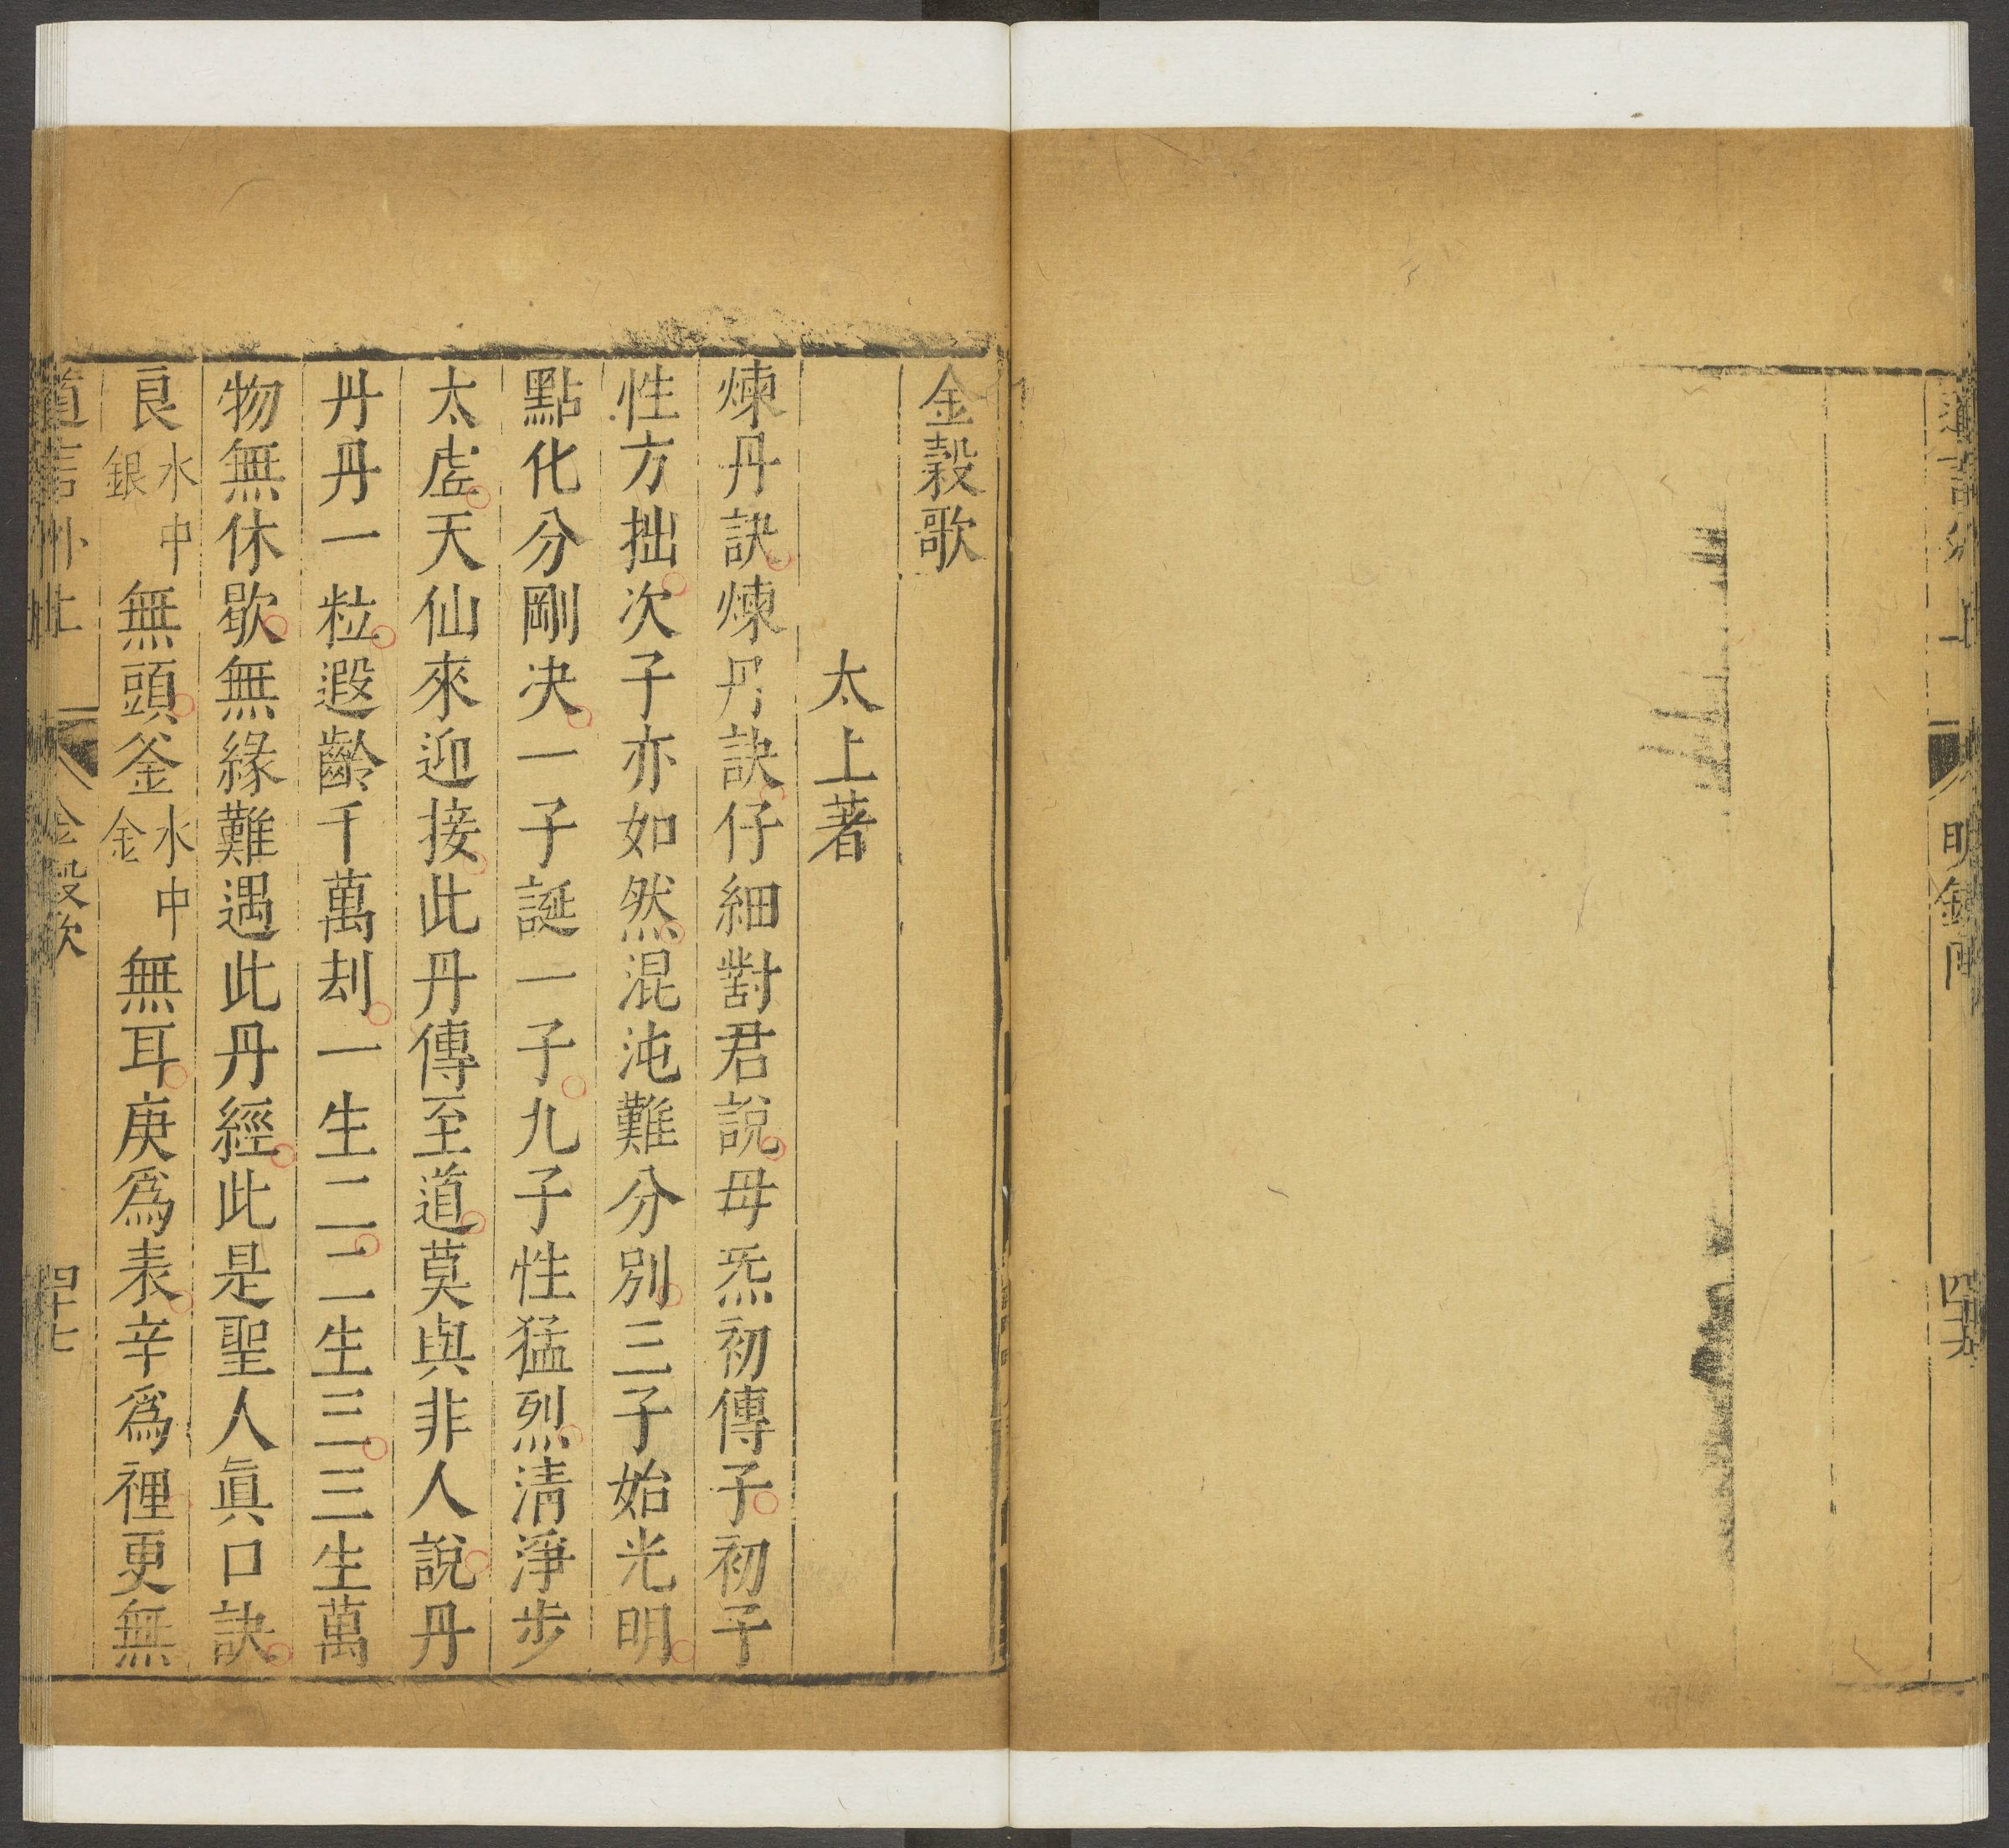 明鏡
四十六
金穀歌
太上著
煉丹訣煉丹訣仔細對君說母炁初傳子初子
性方拙次子亦如然混沌難分別三子始光明
點化分剛决一子誕一子九子性猛烈清淨步
太虗天仙來迎接此丹傳至道莫與非人說丹
丹丹一粒遐齡千萬刼一生二二生三三生萬
物無休歇無緣難遇此丹經此是聖人眞口訣
良水中銀無頭釜水中金無耳庚爲表辛爲裡更無
道言外上
金穀歌
四十七